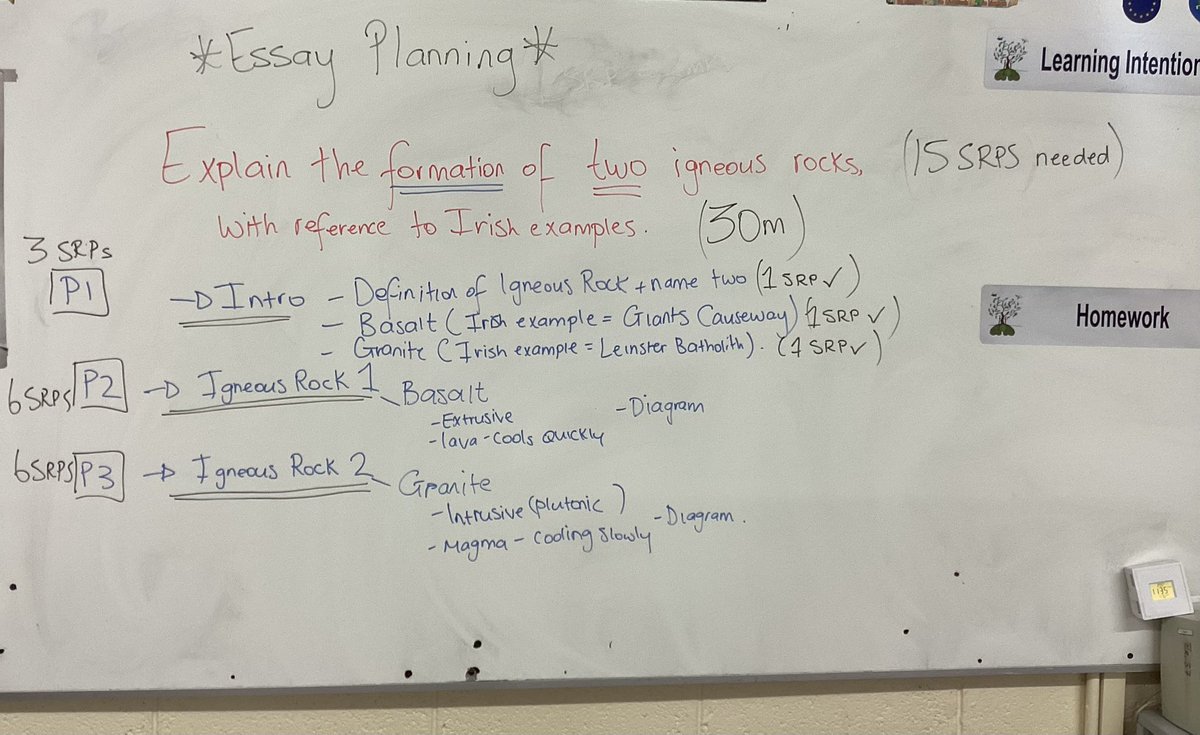 *Essay Planning*
Explain the formation of two igneous rocks, (15 SRPS needed)
With reference to Irish examples. (30m)
3 SRPs
P1 → Intro - Definition of Igneous Rock + name two (1 SRP ✓)
- Basalt (Irish example = Giants Causeway) (1 SRP ✓)
- Granite (Irish example = Leinster Batholith). (1 SRP ✓)
6 SRPS P2 → Igneous Rock 1 Basalt
- Extrusive - Diagram
- lava - cools quickly
6 SRPS P3 → Igneous Rock 2 Granite
- Intrusive (plutonic) - Diagram.
- Magma - cooling slowly
Learning Intention
Homework